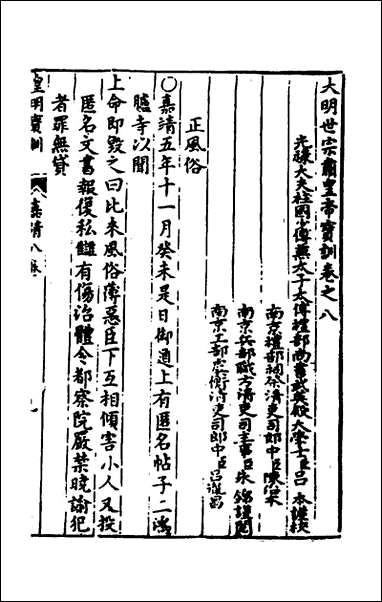 大明世宗肅皇帝寶訓卷之八
光祿大夫柱國少傅兼太子太傅禮部尚書武英殿大學士臣呂本謹校
南京禮部祠祭清吏司郎中臣陳治本
南京兵部職方清吏司主事臣朱錦謹閱
南京工部虞衡清吏司郎中臣呂胤昌
正風俗
○嘉靖五年十一月癸未是日御道上有匿名帖子二鴻
臚寺以聞
上命即毀之曰比來風俗薄惡臣下互相傾害小人又投
匿名文書報復私讎有傷治體令都察院嚴禁曉諭犯
者罪無貸
皇明寶訓 嘉靖八卷